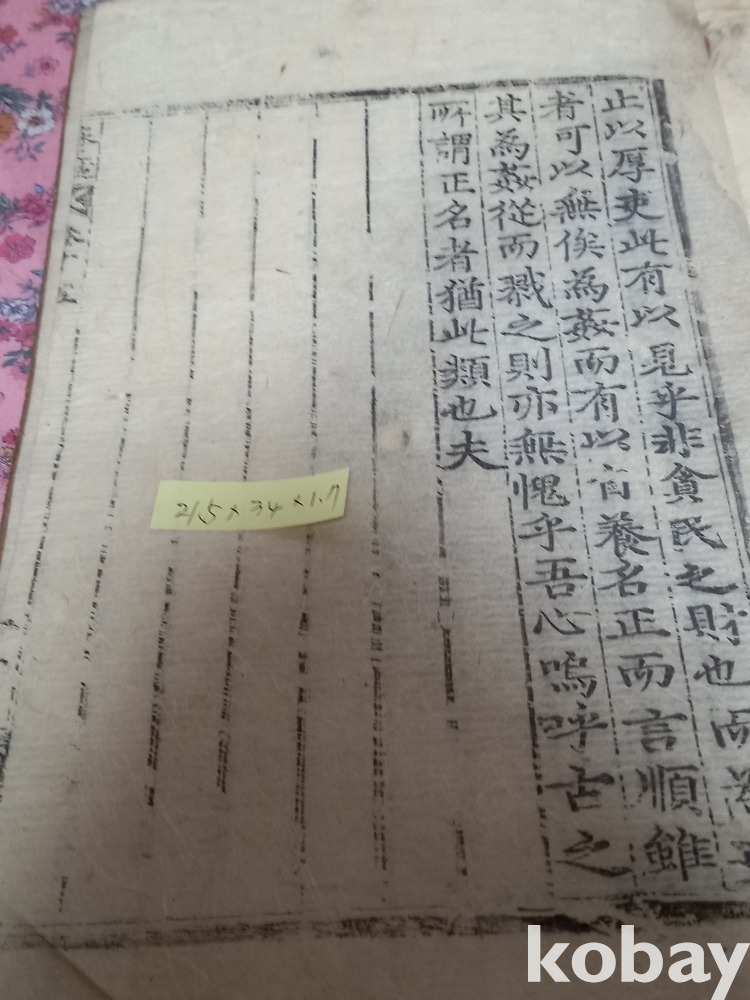 止以厚吏此有以見乎非貪民之貯也而
者可以無俟為姦而有以自養名正而言順雖
其為姦從而戮之則亦無愧乎吾心嗚呼古之
所謂正名者猶此類也夫
21.5 x 34 x 1.7
kobay